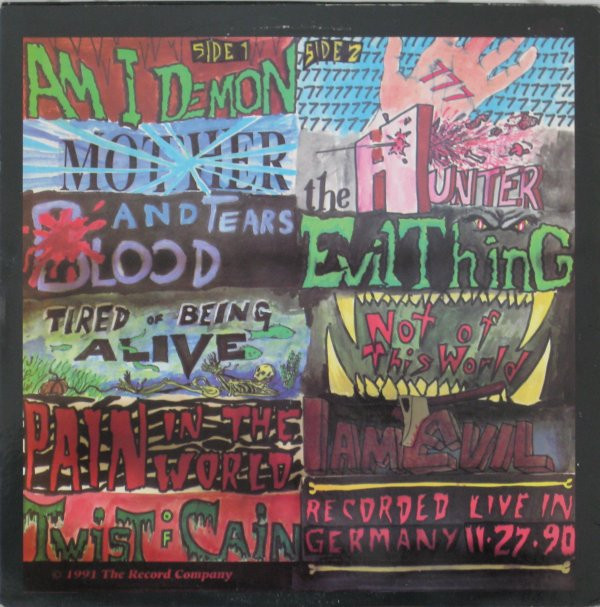 SIDE 1
AM I DEMON
MOTHER
BLOOD AND TEARS
TIRED OF BEING
ALIVE
PAIN IN THE
WORLD
TWIST OF CAIN
© 1991 The Record Company
SIDE 2
777
the HUNTER
EVIL THING
Not of
This World
I AM EVIL
RECORDED LIVE IN
GERMANY 11·27·90